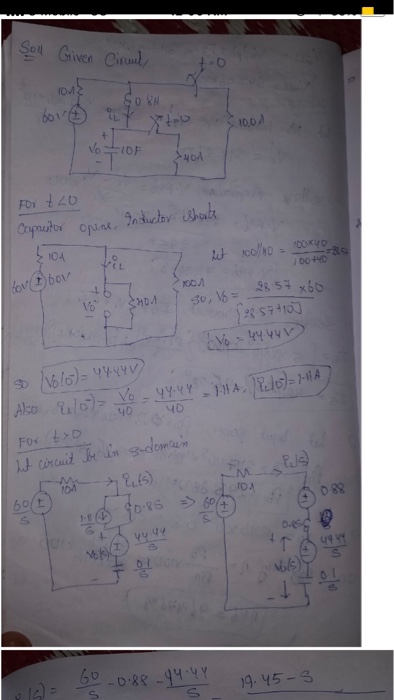 12:00 AM
Soln Given Circuit,
t=0
10Λ
0.8H
60V
iL
t=0
100Λ
+
V0
10F
-
40Λ
For t<0
Capacitor opens, Inductor shorts
10Λ
iL
60V
60V
+
V0
-
40Λ
100Λ
Let 100//40 = 100×40 / 100+40 = 28.57
so, V0 = 28.57 × 60 / [28.57+10]
V0 = 44.44V
SO V0(0-) = 44.44V
Also iL(0-) = V0/40 = 44.44/40 = 1.11A, iL(0-) = 1.11A
For t>0
Let circuit be in s-domain
60/S
10Λ
IL(s)
0.8S
+
44.44/S
V0(s)
0.1/S
-
=>
60/S
10Λ
IL(s)
0.88
0.8S
+
44.44/S
V0(s)
0.1/S
-
60/S - 0.88 - 44.44/S
19.45 - S